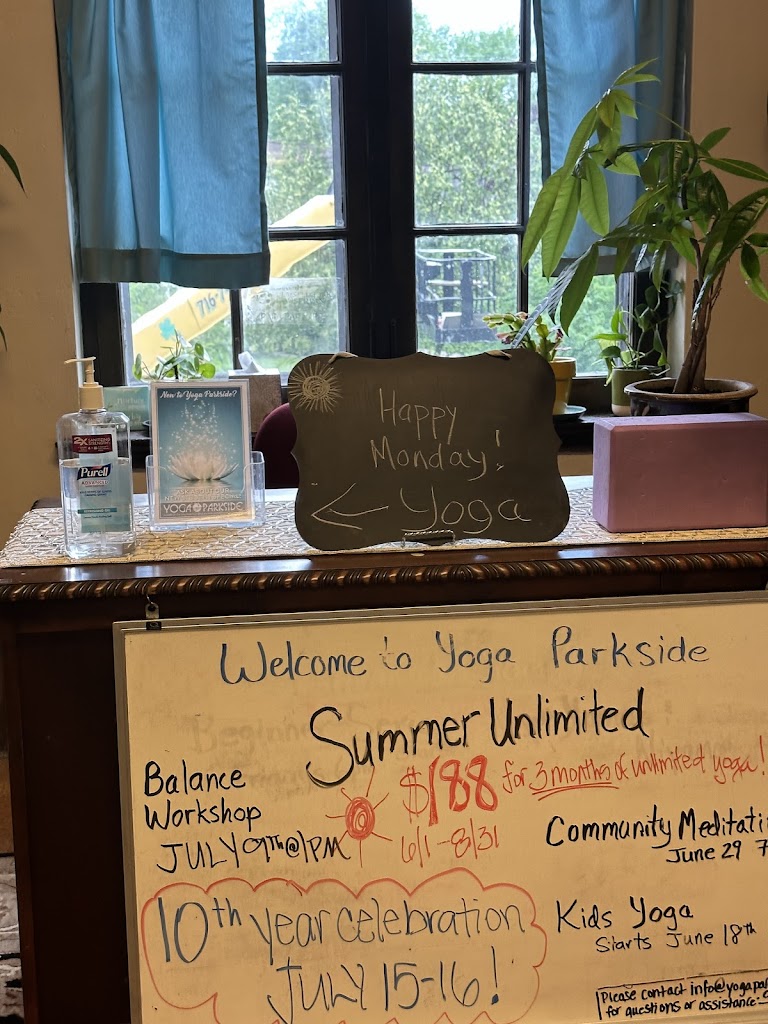 716-
2X
SANITIZING
STRENGTH
Purell
ADVANCED
New to Yoga Parkside?
ASK ABOUT OUR
YOGA PARKSIDE
Happy
Monday!
← Yoga
Welcome to Yoga Parkside
Summer Unlimited
$188 for 3 months of unlimited yoga!
6/1-8/31
Balance
Workshop
JULY 9Th @ 1PM
Community Meditati
June 29 7
10th year celebration
JULY 15-16!
Kids Yoga
Starts June 18th
Please contact info@yogapa
for questions or assistance.